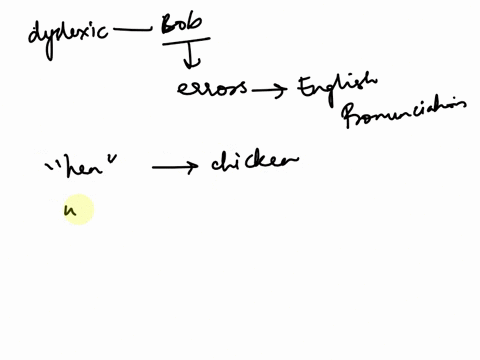 dydexic — Bob
errors → English
Pronunciation
"hen" → chicken